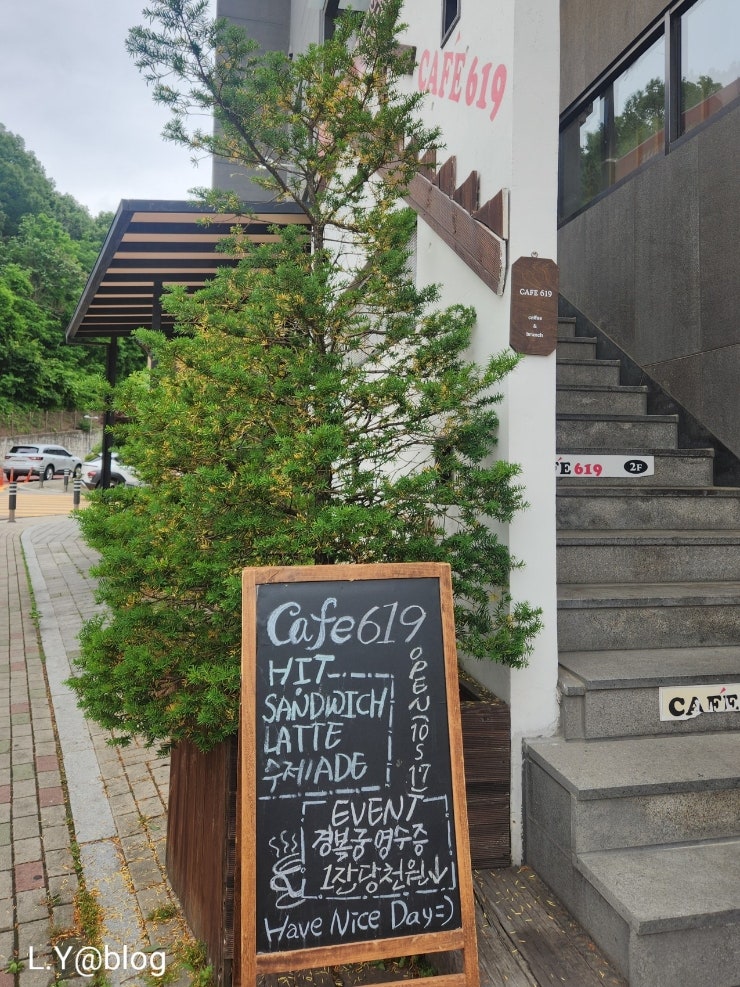 CAFÉ 619
CAFE 619
coffee
&
brunch
FE 619 2F
CAFE
Cafe 619
HIT
SANDWICH
LATTE
수제/ADE
OPEN (10 S 17)
EVENT
경복궁 영수증
1잔당 천원↓
Have Nice Day=)
L.Y@blog